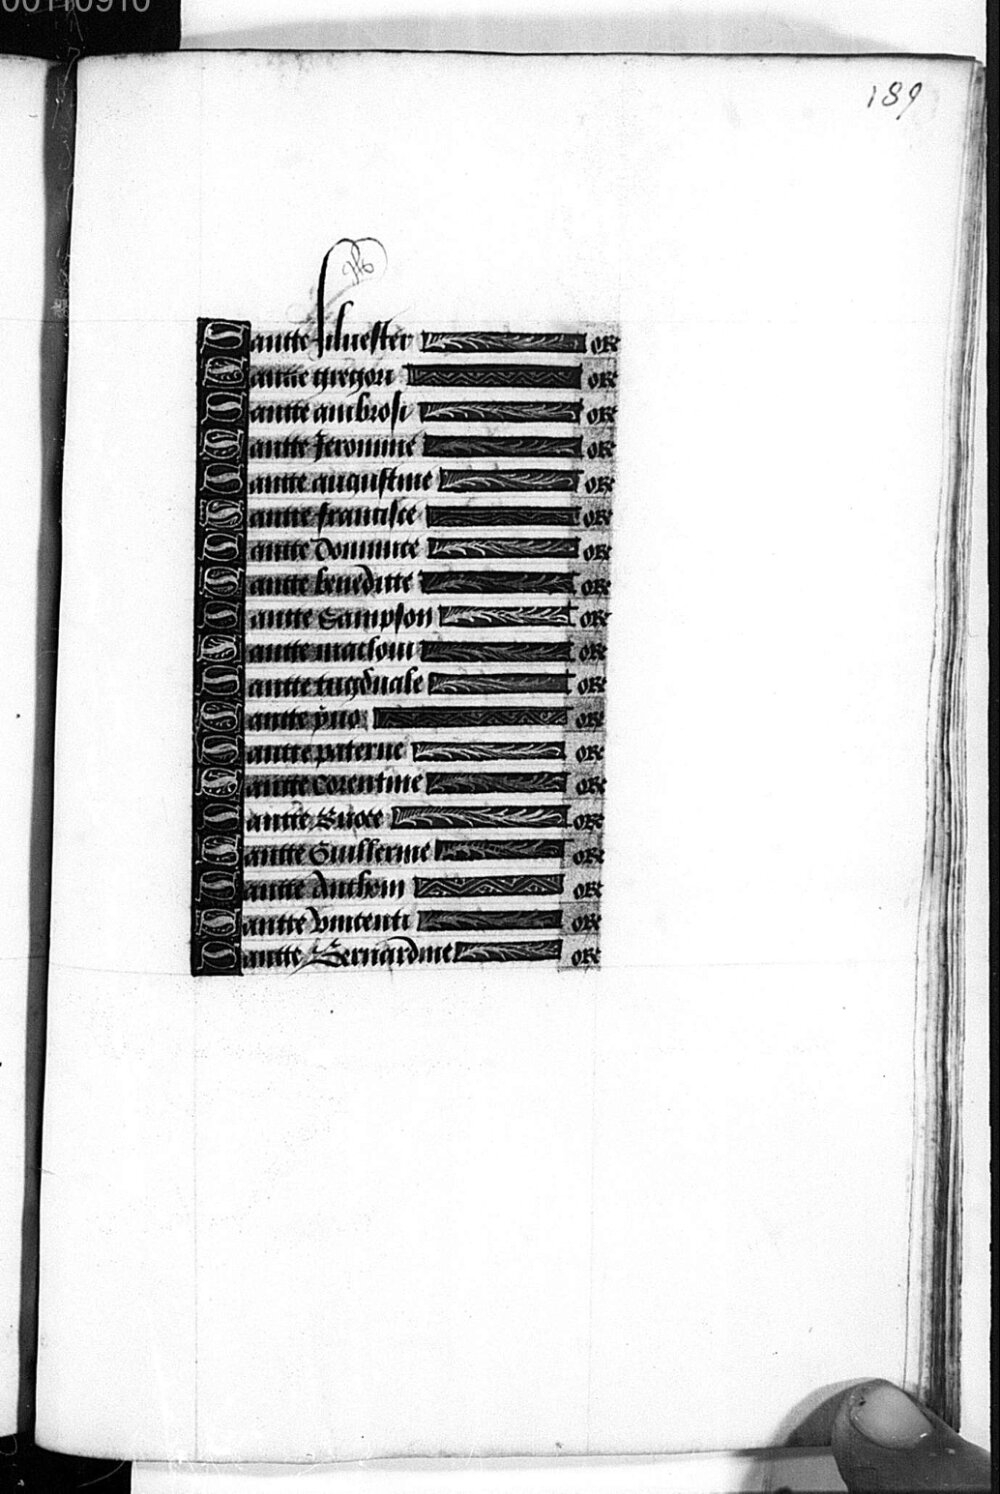 189
Sancte siluester or
Sancte gregori or
Sancte ambrosi or
Sancte Jeronime or
Sancte augustine or
Sancte francisce or
Sancte dominice or
Sancte benedicte or
Sancte Sampson or
Sancte macloui or
Sancte tugduale or
Sancte yuo or
Sancte paterne or
Sancte corentine or
Sancte or
Sancte Guillerme or
Sancte Anthoni or
Sancte vincenti or
Sancte Bernardine or